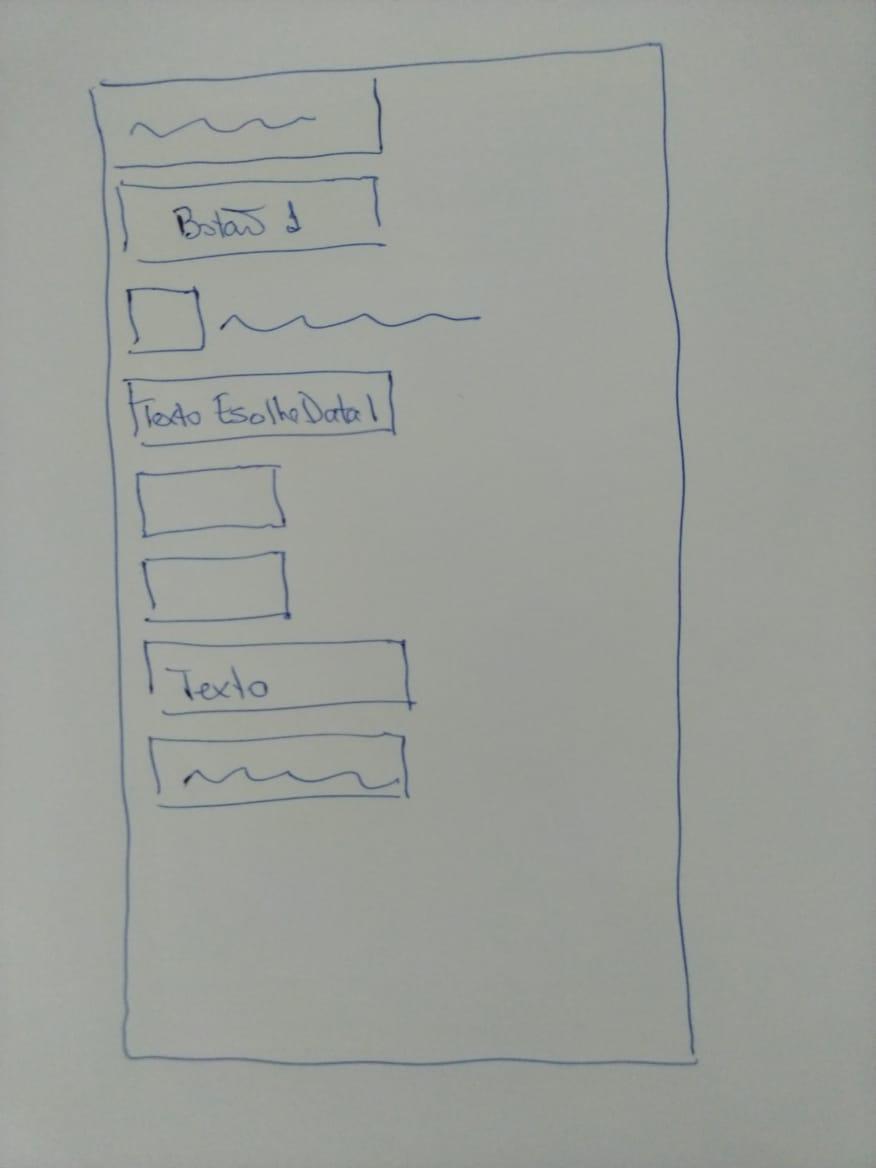 Botão 1
Texto EsolheData1
Texto